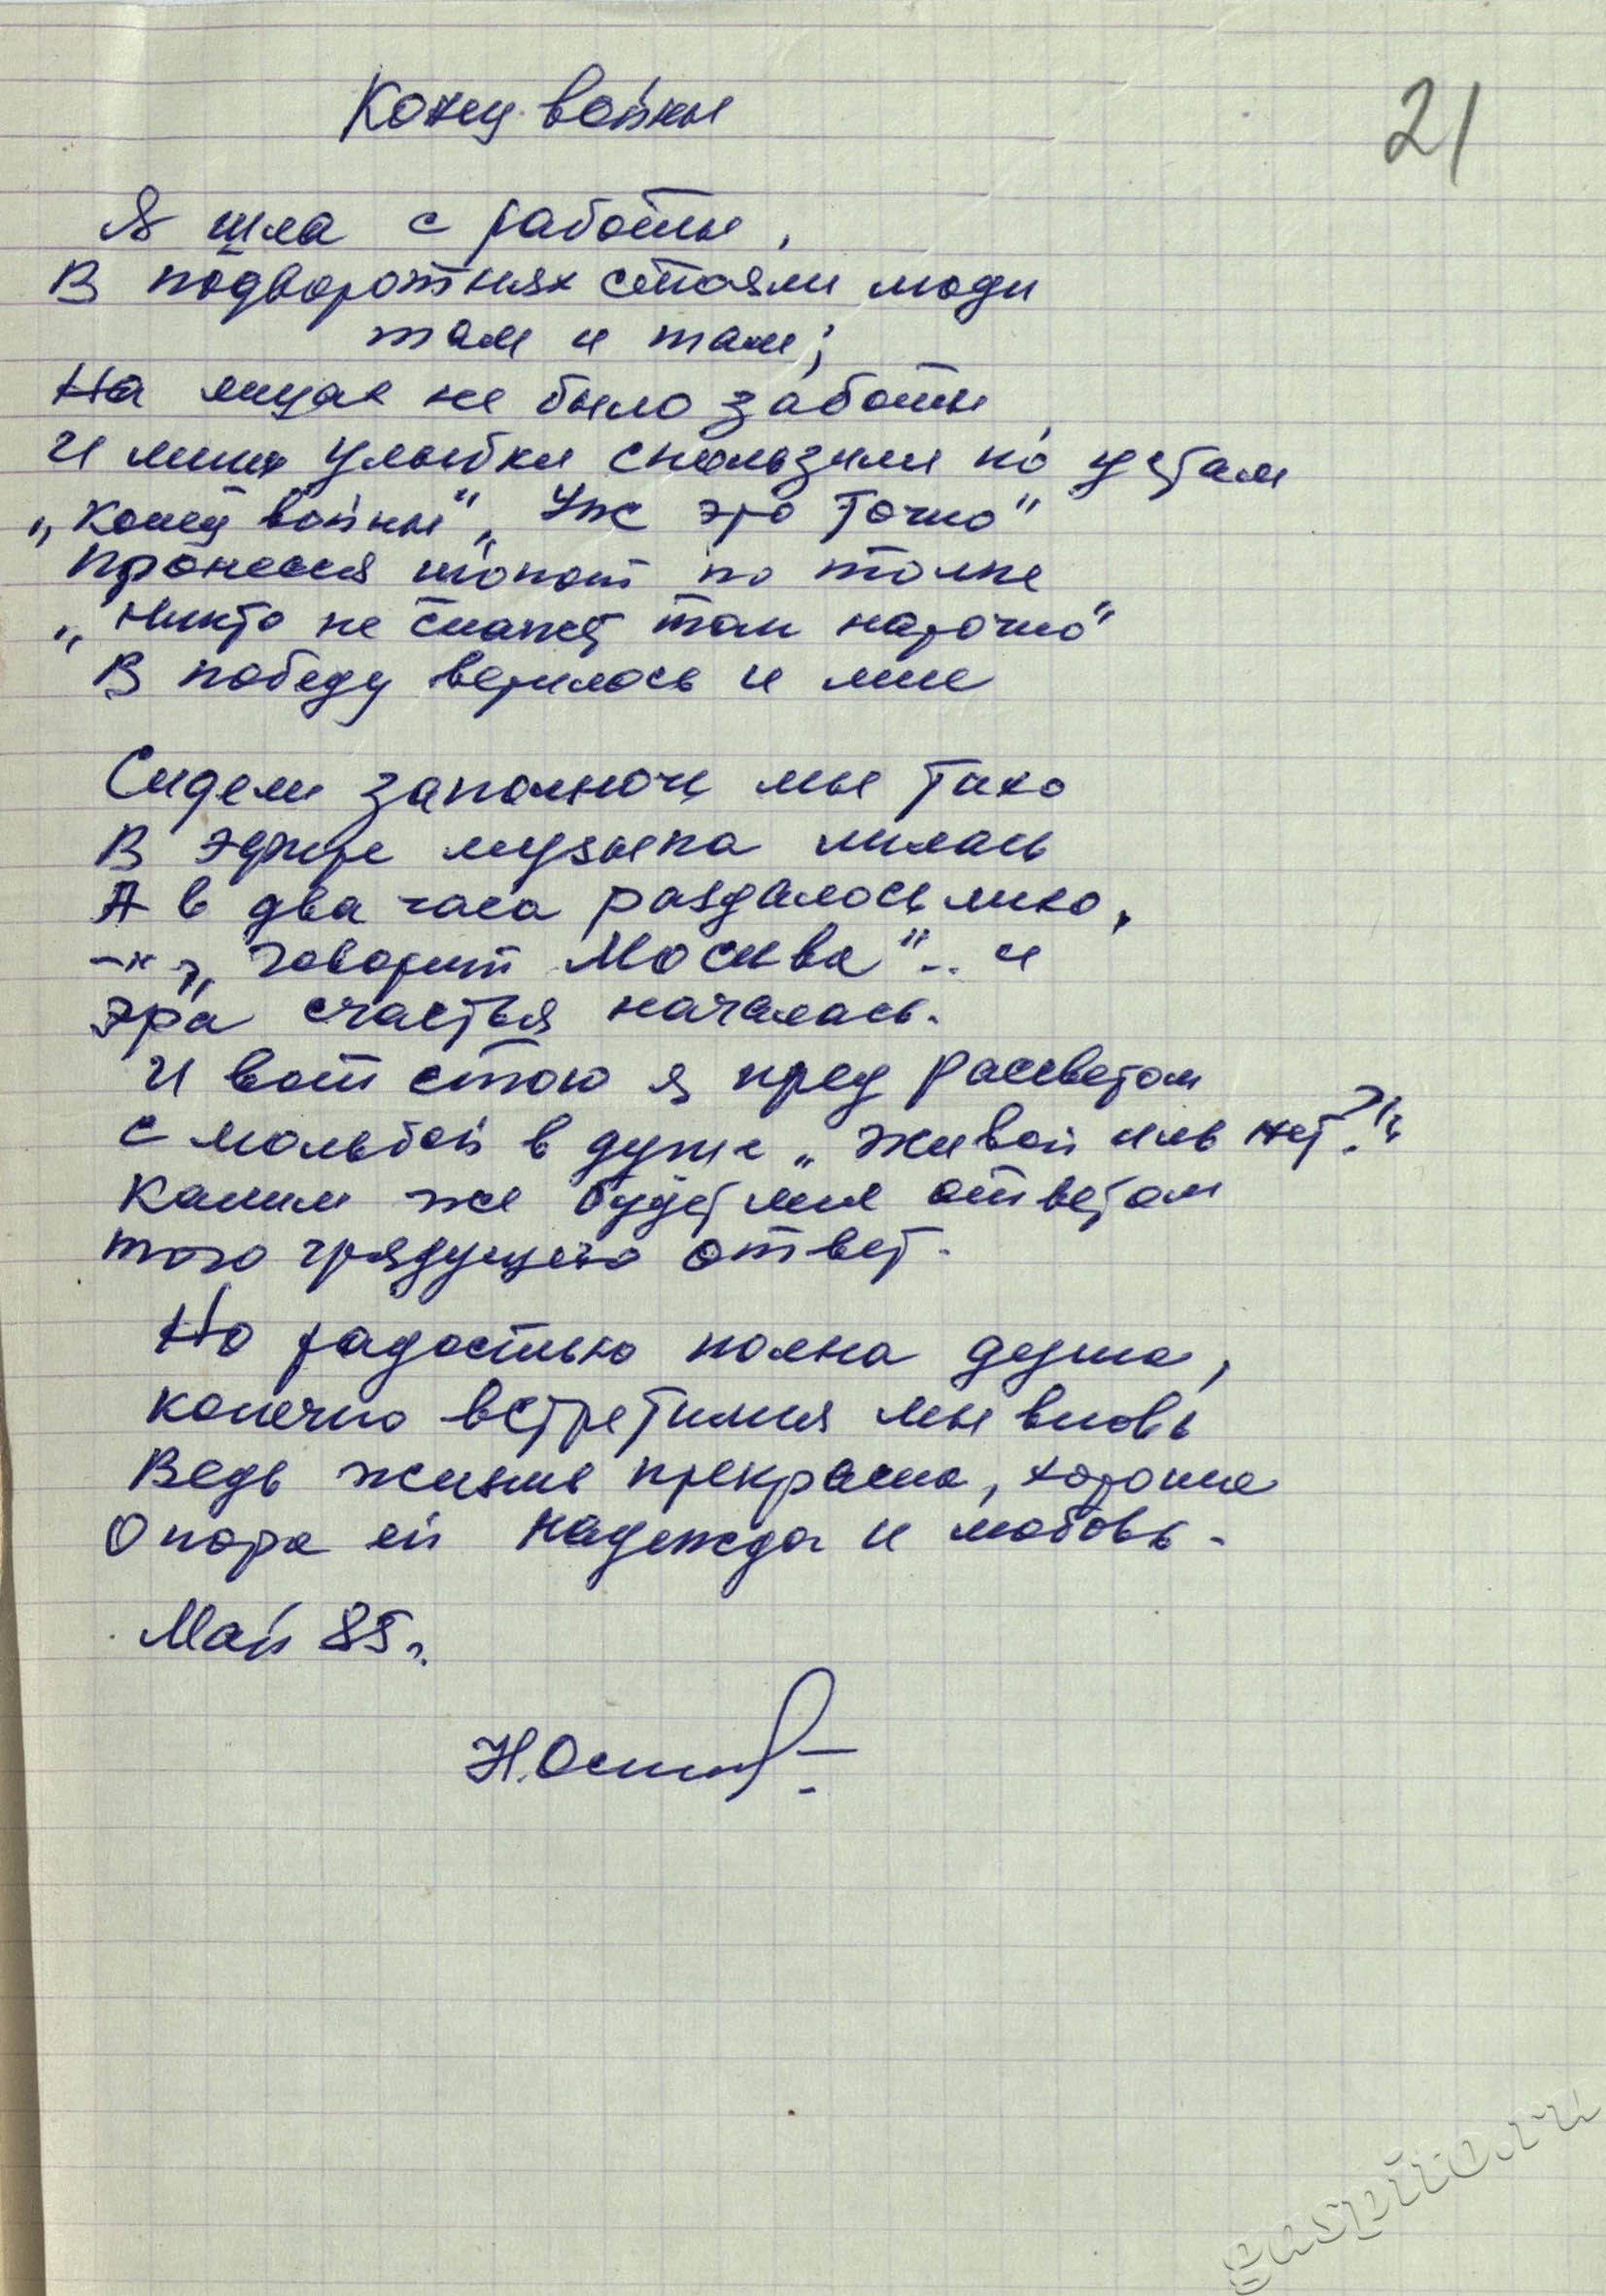 Конец войны
21
Я шла с работы,
В подворотнях стояли люди
там и там;
На лицах не было заботы
И лишь улыбки скользили по устам
„Конец войны“, „Уж это точно“
Пронесся шопот по толпе
„Никто не скажет так нарочно“
В победу верилось и мне
Сидели заполночь мы тихо
В эфире музыка лилась
А в два часа раздалось лихо,
„Говорит Москва“... и
эра счастья началась.
И вот стою я пред рассветом
с мольбой в душе „живой иль нет?“
Каким же будет мне ответом
того грядущего ответ.
Но радостью полна душа,
конечно встретимся мы вновь
Ведь жизнь прекрасна, хороша
Опора ей надежда и любовь.
Май 85 г.
Н. Осипов
gaspito.ru